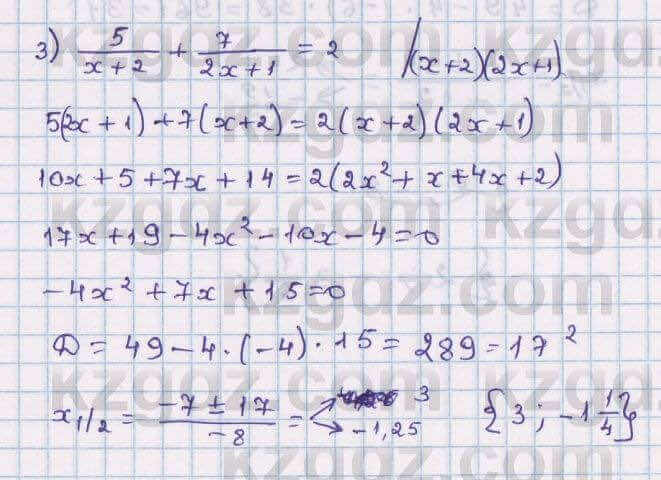 3) 5/(x+2) + 7/(2x+1) = 2 /(x+2)(2x+1)
5(2x+1)+7(x+2)=2(x+2)(2x+1)
10x+5+7x+14=2(2x²+x+4x+2)
17x+19-4x²-10x-4=0
-4x²+7x+15=0
D=49-4·(-4)·15=289=17²
x₁/₂ = (-7±17)/(-8) = 3 {3; -1 1/4}
-1,25
kzgdz.com